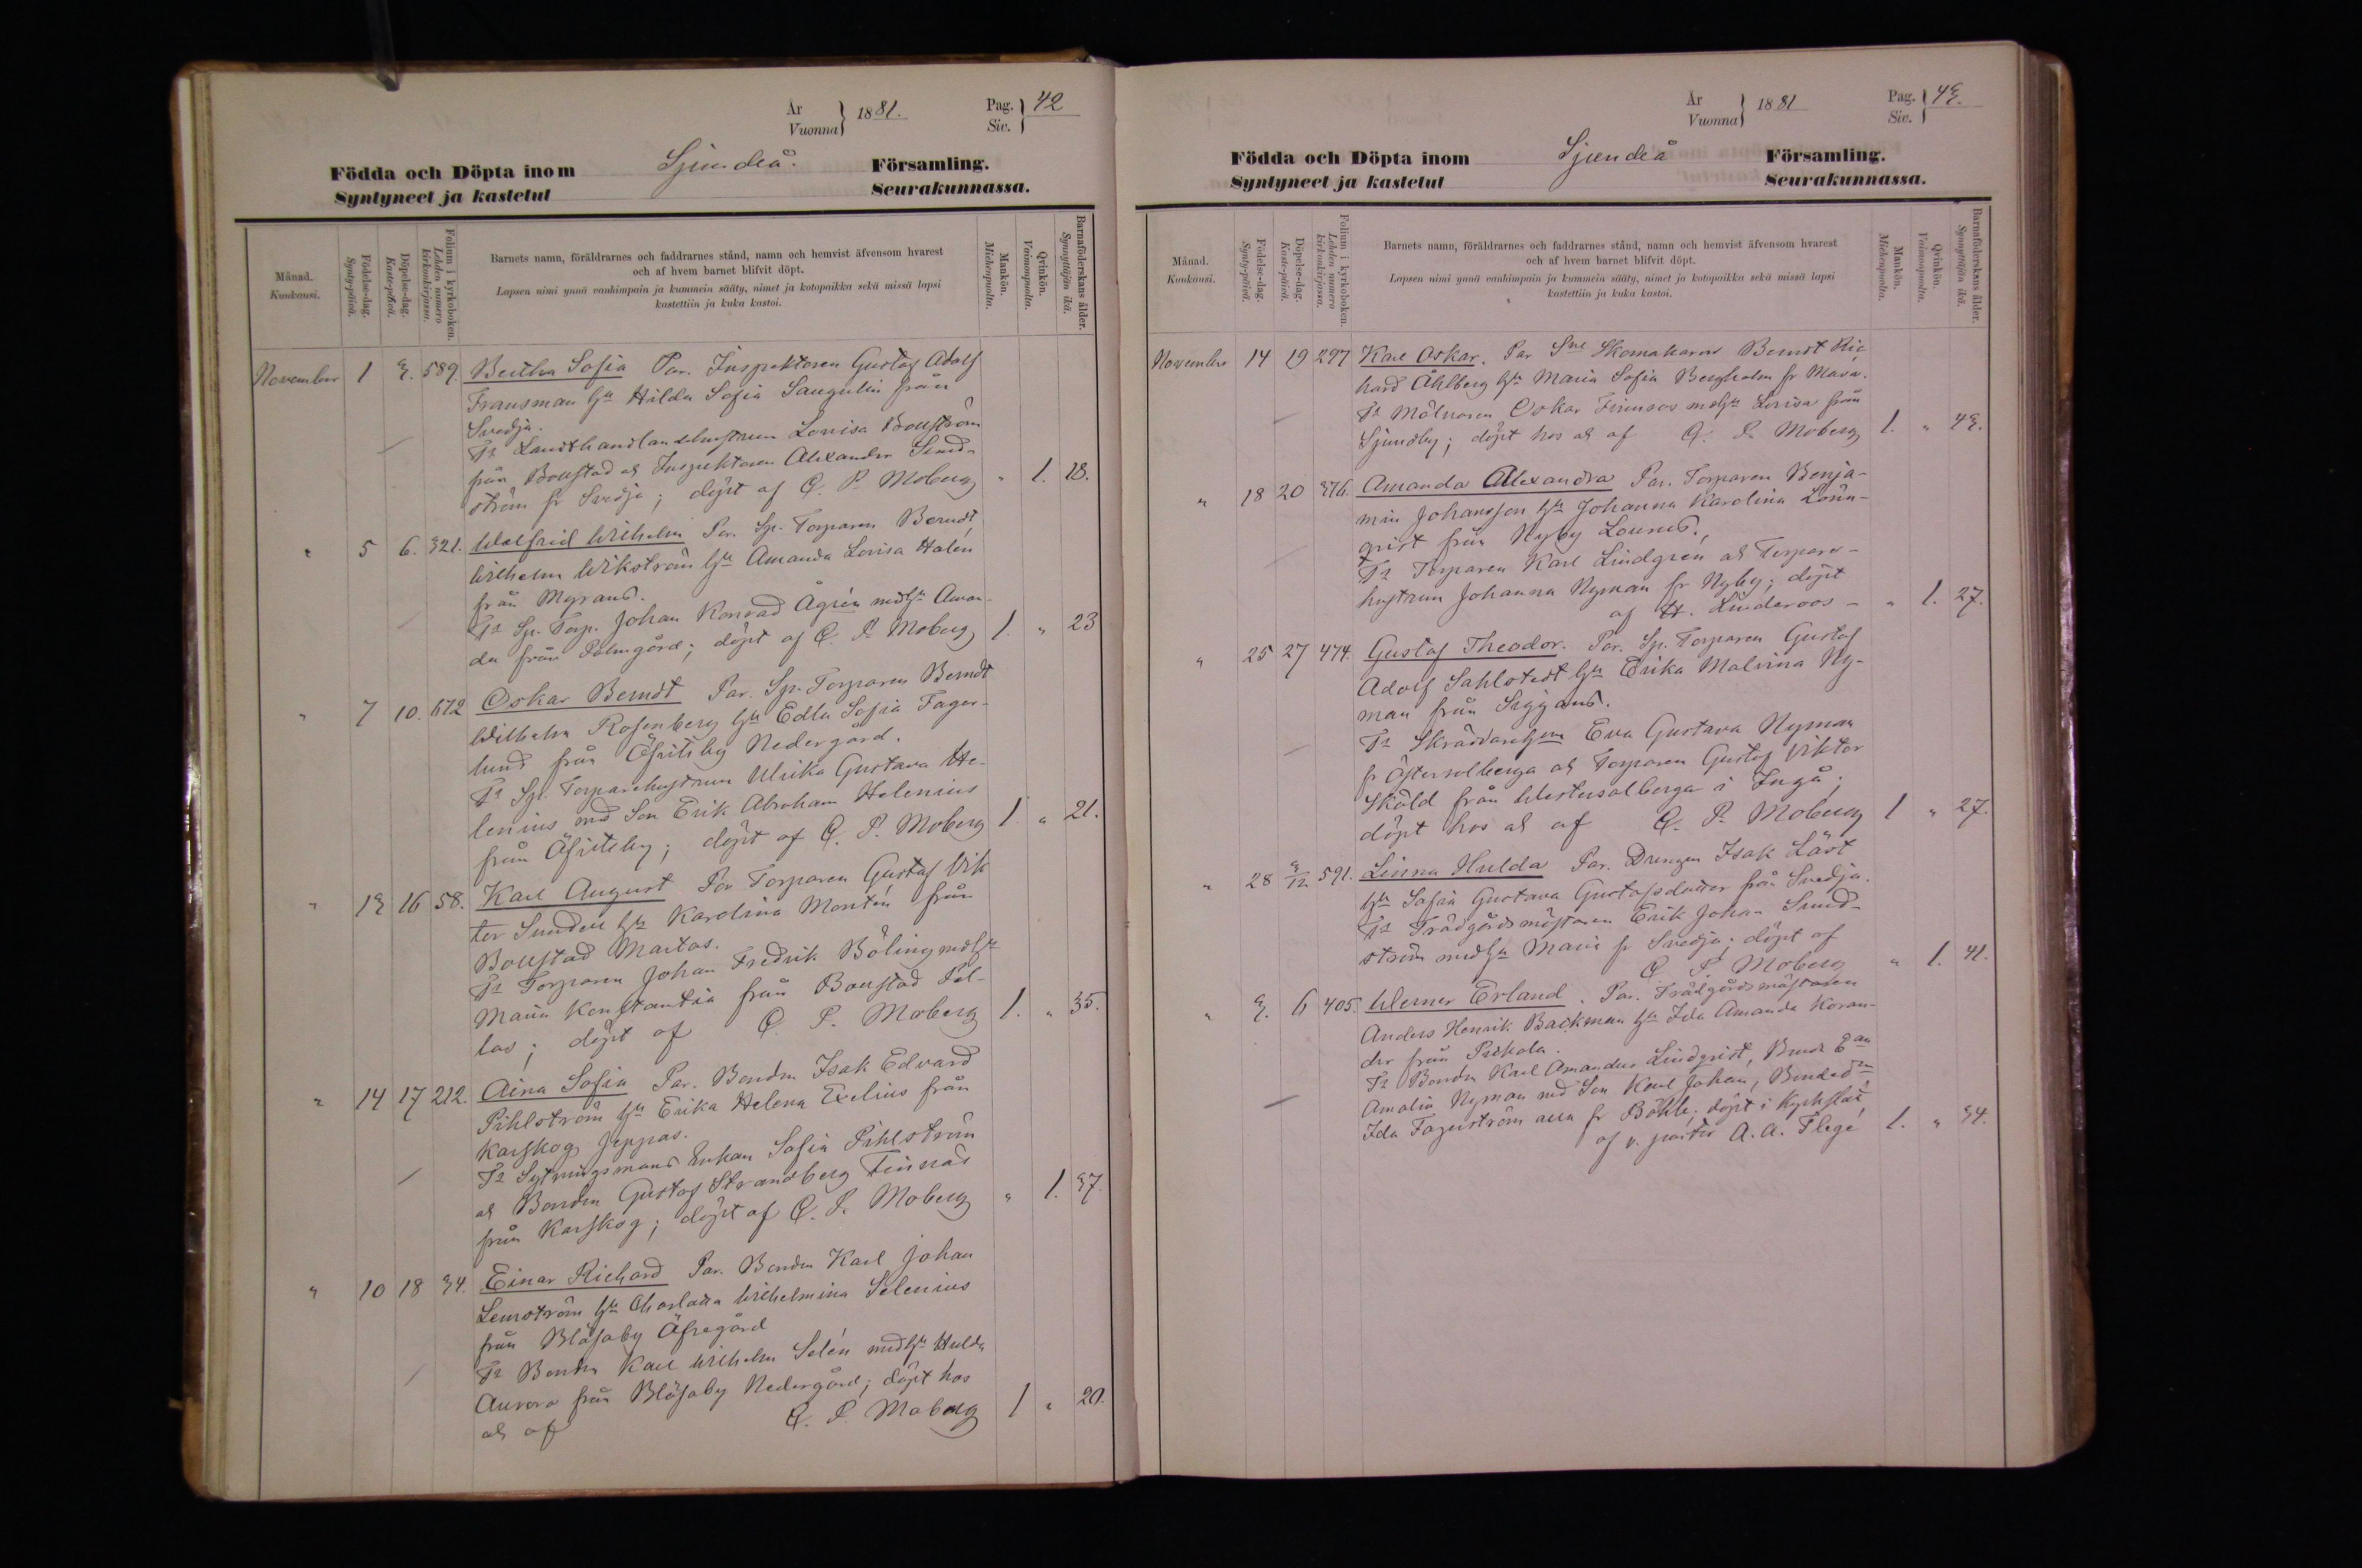 År
Vuonna } 1881.
Pag.
Siv. } 42
Födda och Döpta inom Sjundeå Församling.
Syntyneet ja kastetut Seurakunnassa.
Månad.
Kuukausi.
Födelse-dag.
Synty-päivä.
Döpelse-dag.
Kaste-päivä.
Folium i kyrkoboken.
Lehden numero
kirkonkirjassa.
Barnets namn, föräldrarnes och faddrarnes stånd, namn och hemvist äfvensom hvarest
och af hvem barnet blifvit döpt.
Lapsen nimi ynnä vanhimpain ja kummein sääty, nimet ja kotopaikka sekä missä lapsi
kastettiin ja kuka kastoi.
Mankön.
Miehenpuolta.
Qvinkön.
Vaimonpuolta.
Barnaföderskans ålder.
Synnyttäjän ikä.
November 1 3. 589. Bertha Sofia Par. Inspektoren Gustaf Adolf
Fransman hu Hilda Sofia Sangelin från
Svedja.
Fr Landthandlarehustrun Lovisa Bouström
från Boustad och Inspektoren Alexander Sund-
ström fr Svedja; döpt af Q. P. Moberg " 1. 18.
" 5 6. 321. Walfrid Wilhelm Par. Sp. Torparen Berndt
Wilhelm Wikström hu Amanda Lovisa Halén
från Myrans.
Fr Sp. Torp. Johan Konrad Ågrén med hu Aman-
da från Palmgård; döpt af Q. P. Moberg 1. " 23
" 7 10. 672 Oskar Berndt Par. Sp. Torparen Berndt
Wilhelm Rosenberg hu Edla Sofia Fager-
lund från Äfvitsby Nedergård.
Fr Sp. Torparehustrun Ulrika Gustava He-
lenius med Son Erik Abraham Helenius
från Äfvitsby; döpt af Q. P. Moberg 1. " 21.
" 13 16 58. Karl August Par Torparen Gustaf Vik
tor Sundell hu Karolina Montén från
Boustad Martas.
Fr Torparen Johan Fredrik Böling med hu
Maria Konstantia från Boustad Pel-
las; döpt af Q. P. Moberg 1. " 35.
" 14 17 212. Aina Sofia Par. Bonden Isak Edvard
Pihlström hu Erika Helena Exelius från
Karskog Jeppas.
Fr Sytningsmans Enkan Sofia Pihlström
och Bonden Gustaf Strandberg Finnas
från Karskog; döpt af Q. P. Moberg " 1. 37.
" 10 18 34. Einar Richard Par. Bonden Karl Johan
Lemström hu Charlotta Wilhelmina Selenius
från Blåsaby Äfregård
Fr Bonden Karl Wilhelm Selén med hu Hulda
Aurora från Blåsaby Nedergård; döpt hos
och af Q. P. Moberg 1 " 20.
År
Vuonna } 1881
Pag.
Siv. } 43.
Födda och Döpta inom Sjundeå Församling.
Syntyneet ja kastetut Seurakunnassa.
Månad.
Kuukausi.
Födelse-dag.
Synty-päivä.
Döpelse-dag.
Kaste-päivä.
Folium i kyrkoboken.
Lehden numero
kirkonkirjassa.
Barnets namn, föräldrarnes och faddrarnes stånd, namn och hemvist äfvensom hvarest
och af hvem barnet blifvit döpt.
Lapsen nimi ynnä vanhimpain ja kummein sääty, nimet ja kotopaikka sekä missä lapsi
kastettiin ja kuka kastoi.
Mankön.
Miehenpuolta.
Qvinkön.
Vaimonpuolta.
Barnaföderskans ålder.
Synnyttäjän ikä.
November 14 19 297 Karl Oskar. Par Sne Skomakaren Berndt Ric
hard Åhlberg hu Maria Sofia Bergholm fr Masa.
Fr Mölnaren Oskar Finnsos med hu Lovisa från
Sjundby; döpt hos och af Q. P. Moberg 1. " 43.
" 18 20 376. Amanda Alexandra Par. Torparen Benja-
min Johansson hu Johanna Karolina Lönn-
qvist från Nyby Lounus.
Fr Torparen Karl Lindgren och Torpare-
hustrun Johanna Nyman fr Nyby; döpt
af H. Linderoos - " 1. 27.
" 25 27 474. Gustaf Theodor. Par. Sp. Torparen Gustaf
Adolf Sahlstedt hu Erika Malvina Ny-
man från Siggans.
Fr Skräddarehun Eva Gustava Nyman
fr Östersolberga och Torparen Gustaf Viktor
Sköld från Westersolberga i Ingå;
döpt hos och af Q. P. Moberg 1 " 27.
" 28 3/12 591. Linna Hulda Par. Drengen Isak Läst
hu Sofia Gustava Gustafsdotter från Svedja.
Fr Trädgårdsmästaren Erik Johan Sund-
ström med hu Maria fr Svedja; döpt af
Q. P. Moberg " 1. 41.
" 3. 6 405. Werner Erland. Par. Trädgårdsmästaren
Anders Henrik Backman hu Ida Amanda Koran-
der från Pickala.
Fr Bonden Karl Amandus Lindqvist, Bonde Ean
Amalia Nyman med Son Karl Johan, Bondedrn
Ida Fagerström alla fr Böhle; döpt i Kyrkslät
af v. pastor A. A. Flege 1. " 34.